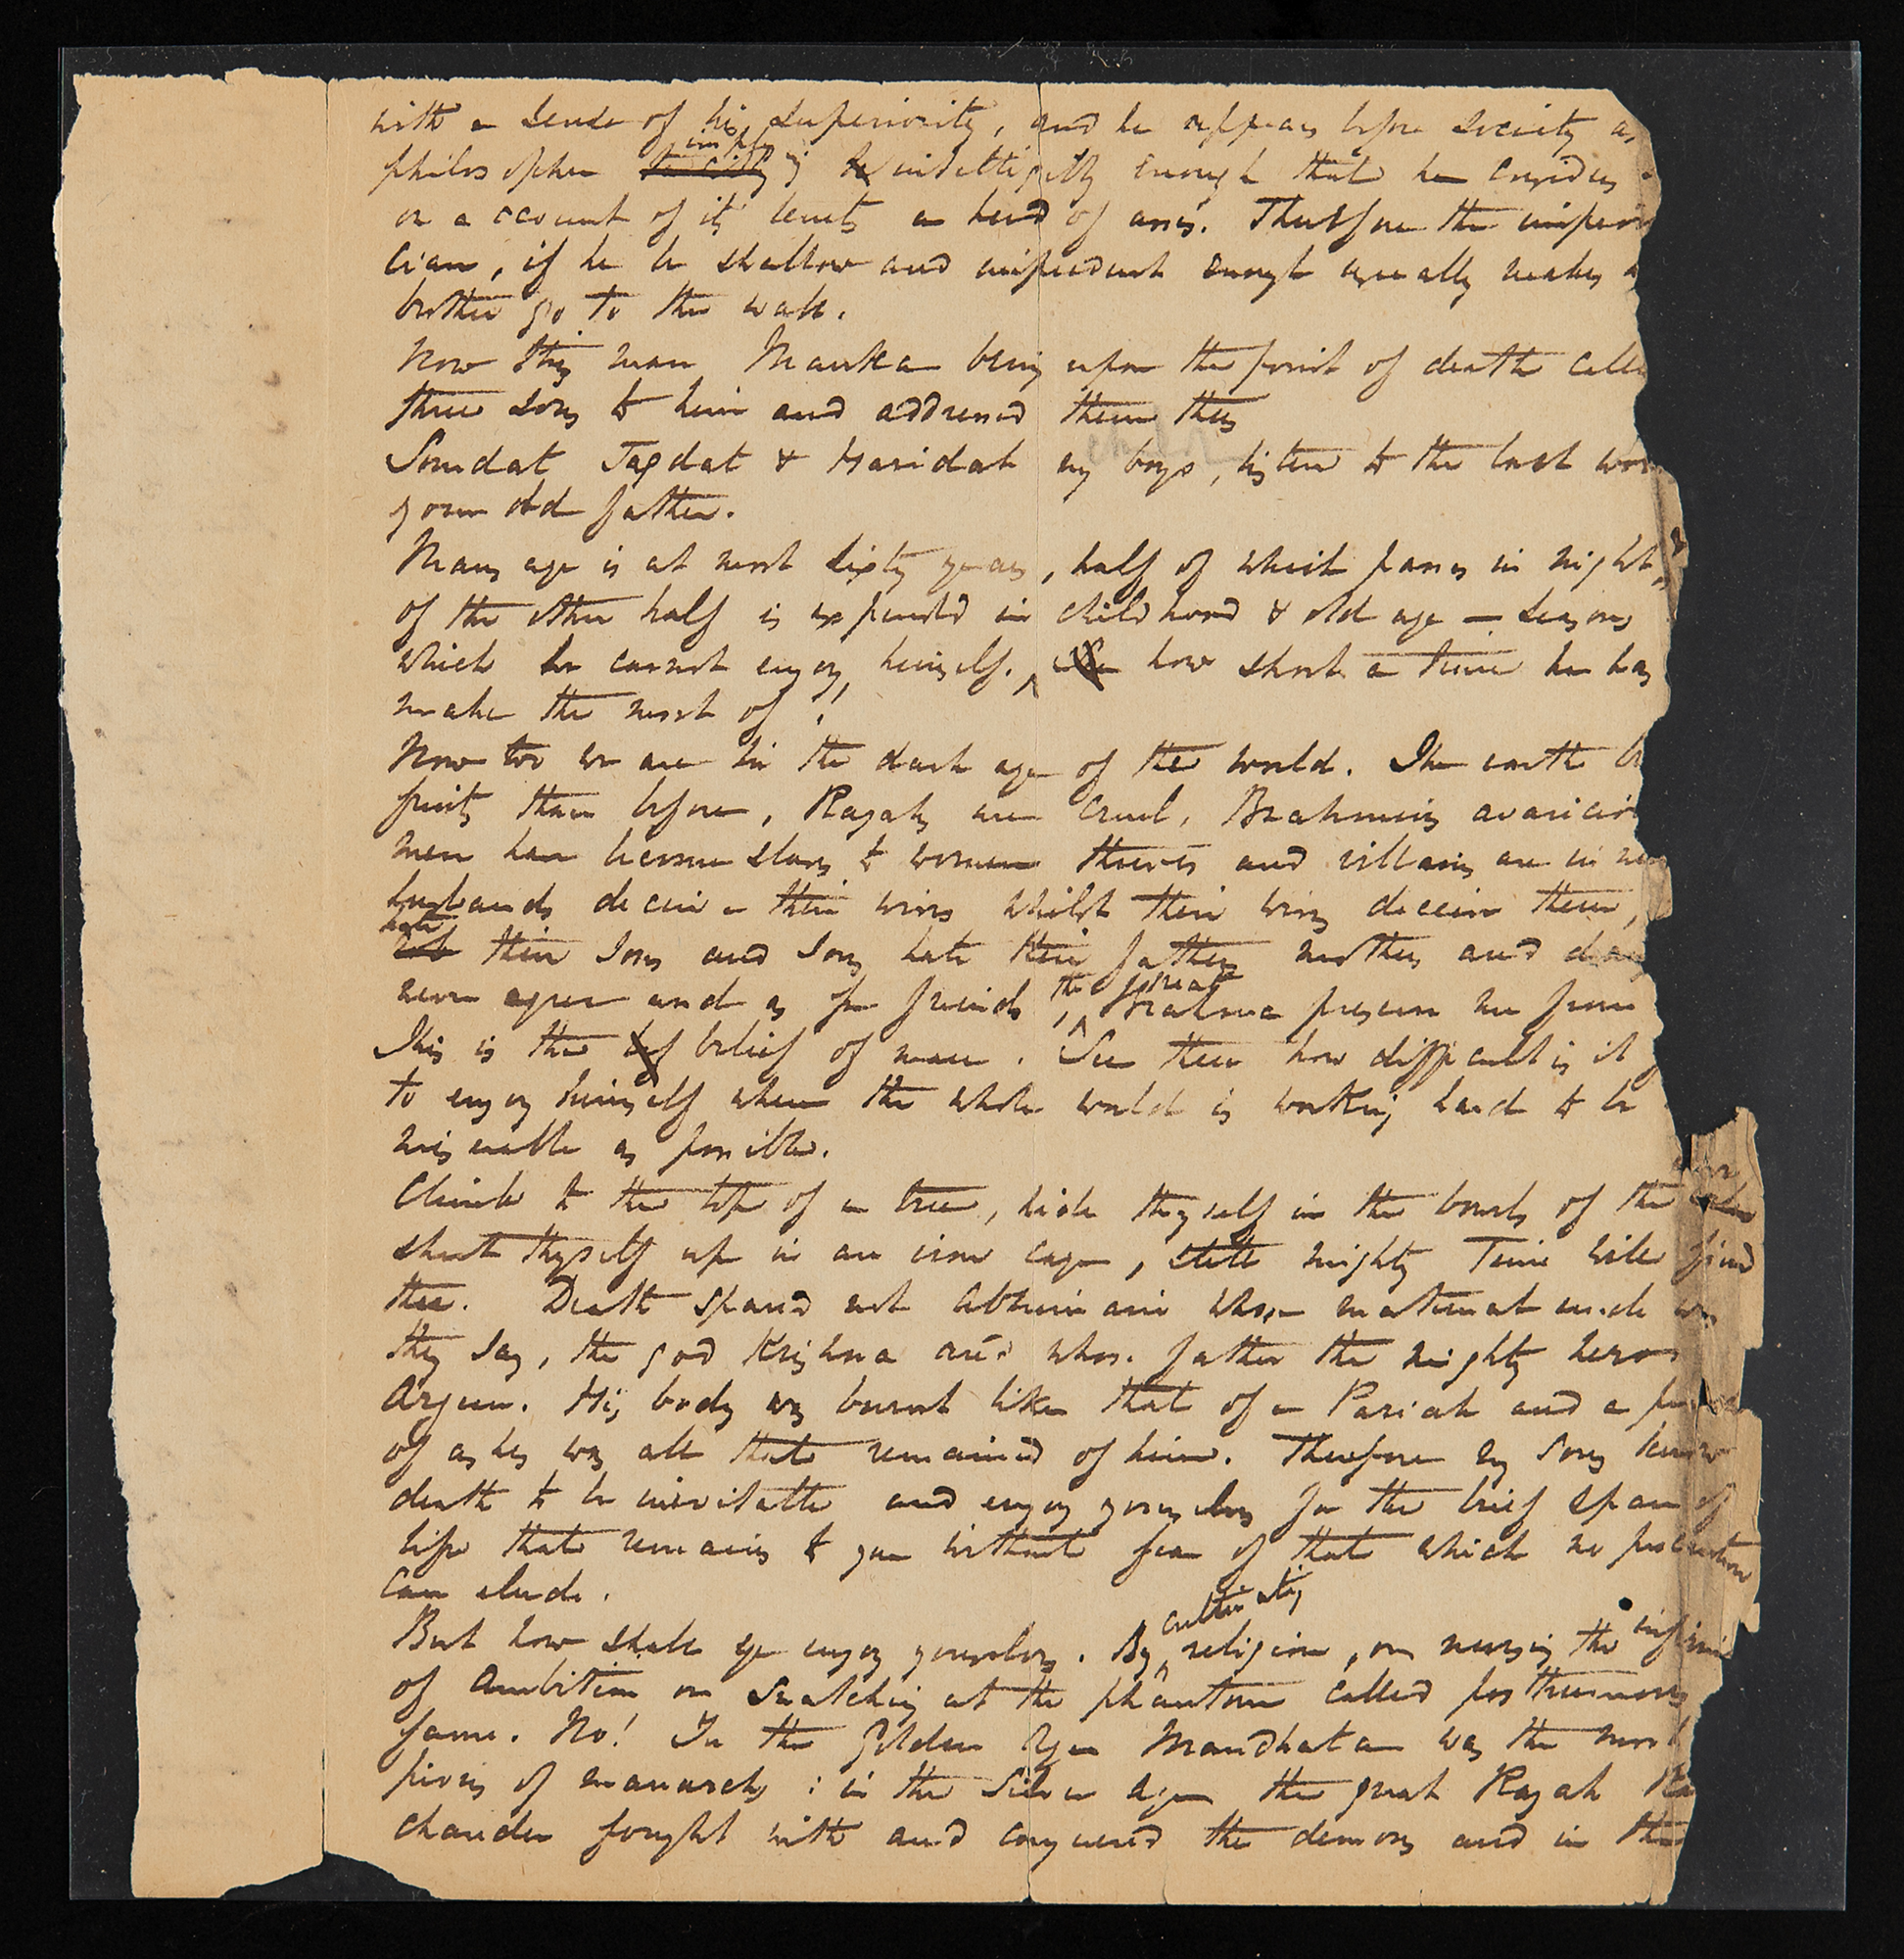 with a sense of his superiority, and he appears before society as
philosopher implying intelligibly enough that he considers
on account of its tenets a herd of asses. Therefore the
cian, if he be shallow and impudent enough usually makes
brother go to the wall.
Now this man Manka being upon the point of death called
three sons to him and addressed them thus
Somdat Jagdat & Haridat my boys, listen to the last
your old father.
Mans age is at most sixty years, half of which passes in night,
of the other half is expended in childhood & old age — seasons
which he cannot enjoy himself. how short a time he has
make the most of!!
Now too we are in the dark age of the world. The earth
fruits than before, Rajahs are cruel, Brahmins
men have become slaves to women thieves and villains are in
husbands deceive their wives whilst their wives deceive them,
hate their sons and sons hate their fathers mothers and
never agree and as for friends, the great Brahma preserve me from
This is the belief of man. See then how difficult is it
to enjoy himself when the whole world is working hard to be
miserable as possible.
Climb to the top of a tree, hide thyself in the bowels of the
shut thyself up in an iron cage, still mighty Time will find
thee. Death spared not Abhimani whose maternal uncle was
they say, the god Krishna and whose father the mighty hero
Arjun. His body was burnt like that of a Pariah and a
of ashes was all that remained of him. Therefore my sons know
death to be inevitable and enjoy yourselves for the brief span of
life that remains to you without fear of that which no precaution
can elude.
But how shall ye enjoy yourselves. By cultivating religion, or nursing the
of Ambition or snatching at the phantom called posthumous
fame. No! In the Golden Age Mandhata was the most
pious of monarchs: in the Silver Age the great Rajah
chander fought with and conquered the demons and in the